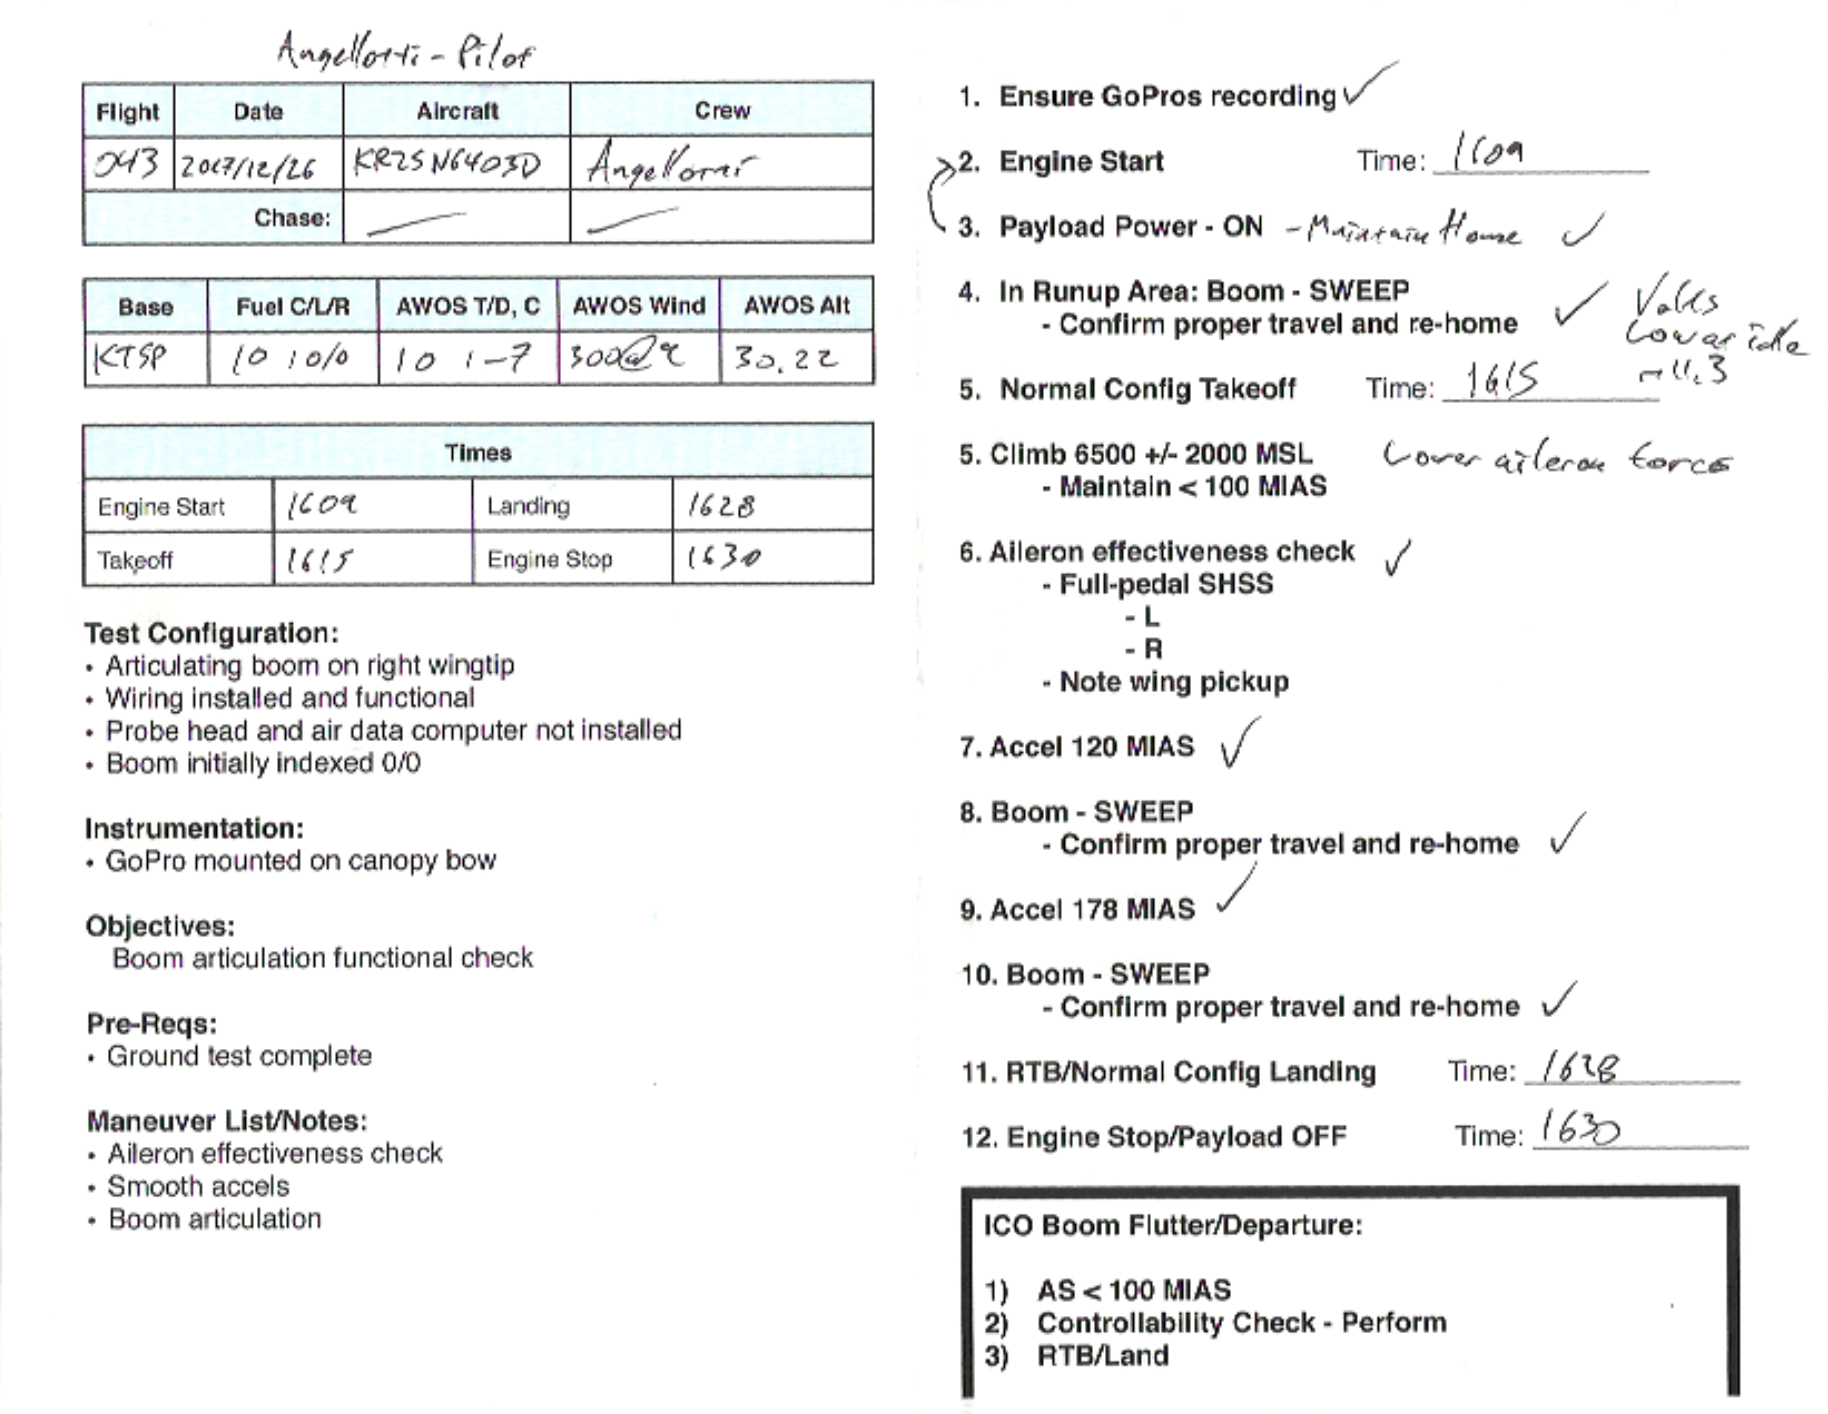 Angellotti - Pilot
Flight Date Aircraft Crew
043 2017/12/26 KR2S N6403D Angellotti
Chase:
Base Fuel C/L/R AWOS T/D, C AWOS Wind AWOS Alt
KTSP 10 10/0 10 1-7 300@9 30.22
Times
Engine Start 1609 Landing 1628
Takeoff 1615 Engine Stop 1630
Test Configuration:
• Articulating boom on right wingtip
• Wiring installed and functional
• Probe head and air data computer not installed
• Boom initially indexed 0/0
Instrumentation:
• GoPro mounted on canopy bow
Objectives:
Boom articulation functional check
Pre-Reqs:
• Ground test complete
Maneuver List/Notes:
• Aileron effectiveness check
• Smooth accels
• Boom articulation
1. Ensure GoPros recording ✓
2. Engine Start Time: 1609
3. Payload Power - ON - Maintain Home ✓
4. In Runup Area: Boom - SWEEP
- Confirm proper travel and re-home ✓
Volts
Lower idle
~11.3
5. Normal Config Takeoff Time: 1615
5. Climb 6500 +/- 2000 MSL Lower aileron forces
- Maintain < 100 MIAS
6. Aileron effectiveness check ✓
- Full-pedal SHSS
- L
- R
- Note wing pickup
7. Accel 120 MIAS ✓
8. Boom - SWEEP
- Confirm proper travel and re-home ✓
9. Accel 178 MIAS ✓
10. Boom - SWEEP
- Confirm proper travel and re-home ✓
11. RTB/Normal Config Landing Time: 1628
12. Engine Stop/Payload OFF Time: 1630
ICO Boom Flutter/Departure:
1) AS < 100 MIAS
2) Controllability Check - Perform
3) RTB/Land